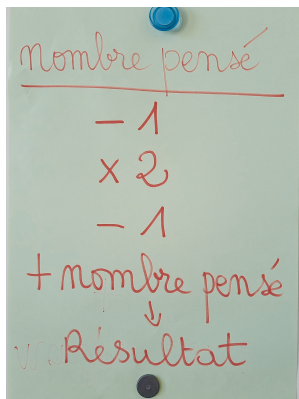 nombre pensé
- 1
x 2
- 1
+ nombre pensé
↓
Résultat